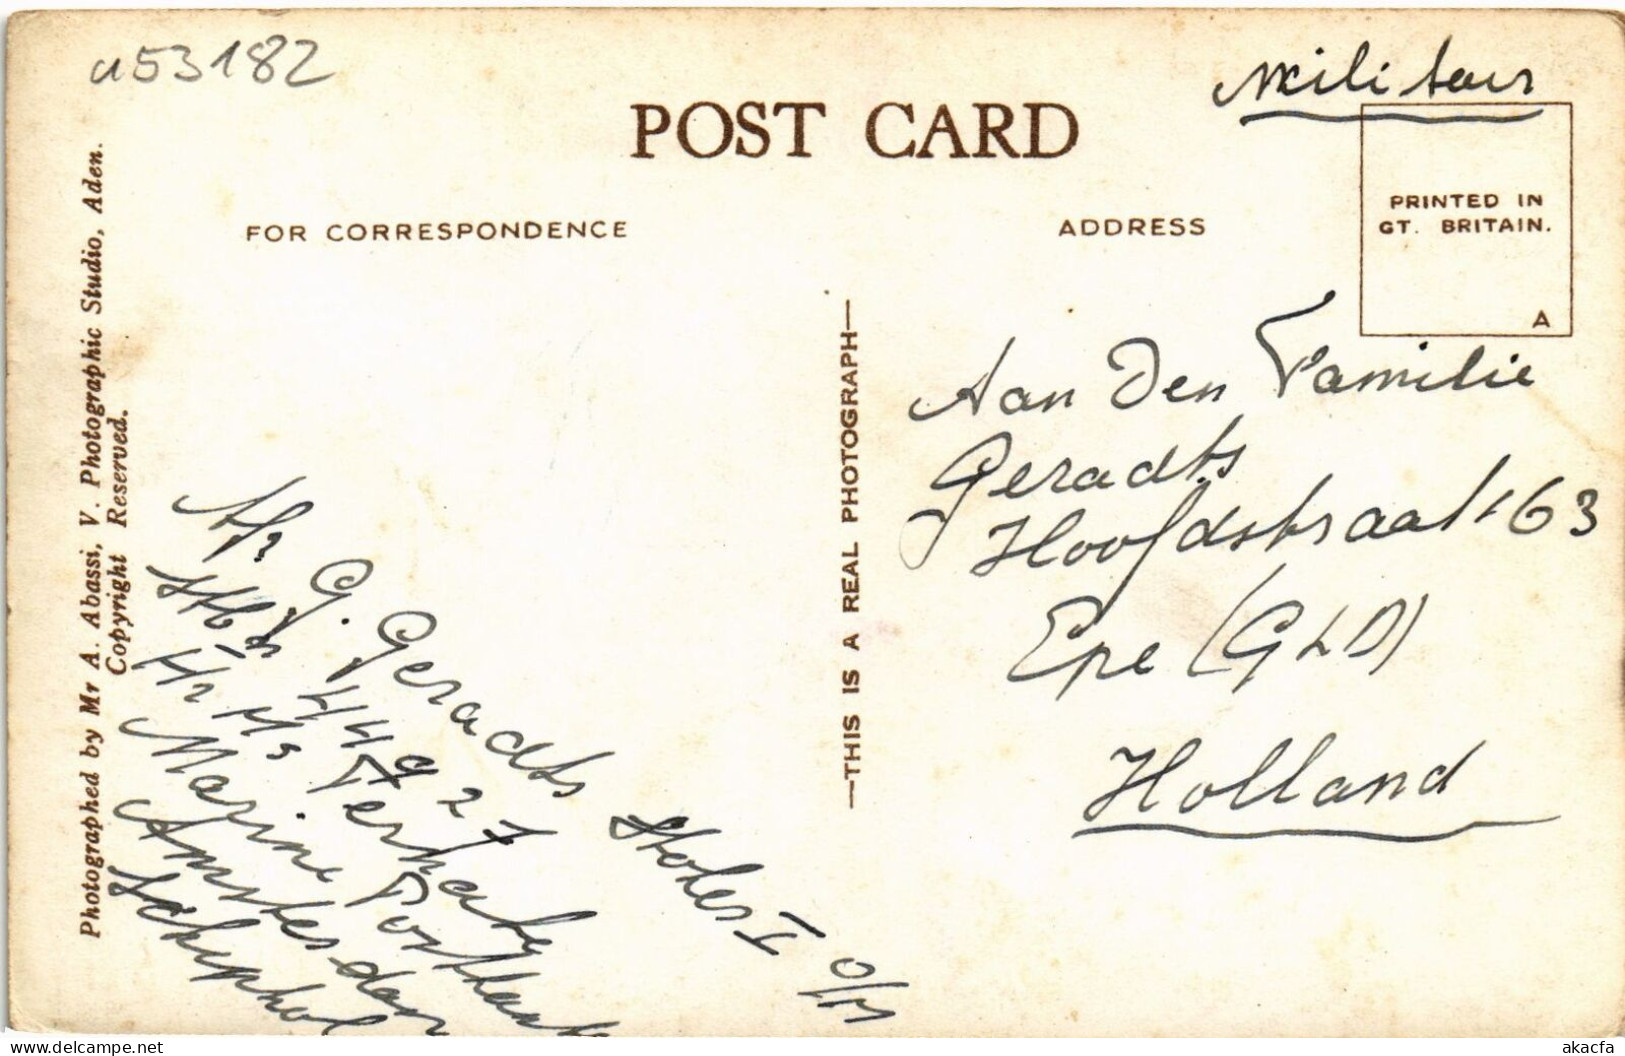 a53182
Militair
POST CARD
FOR CORRESPONDENCE
ADDRESS
PRINTED IN
GT. BRITAIN.
A
Photographed by Mr A. Abassi, V. Photographic Studio, Aden.
Copyright Reserved.
—THIS IS A REAL PHOTOGRAPH—
Aan Den Familie
Geradts
Hoofdstraat 163
Epe (GLD)
Holland
Afz G. Geradts Stoker I o/m
44927
Hr Ms Eversten
Marine Posthank
Amsterdam
Schiphol
akacfa
delcampe.net